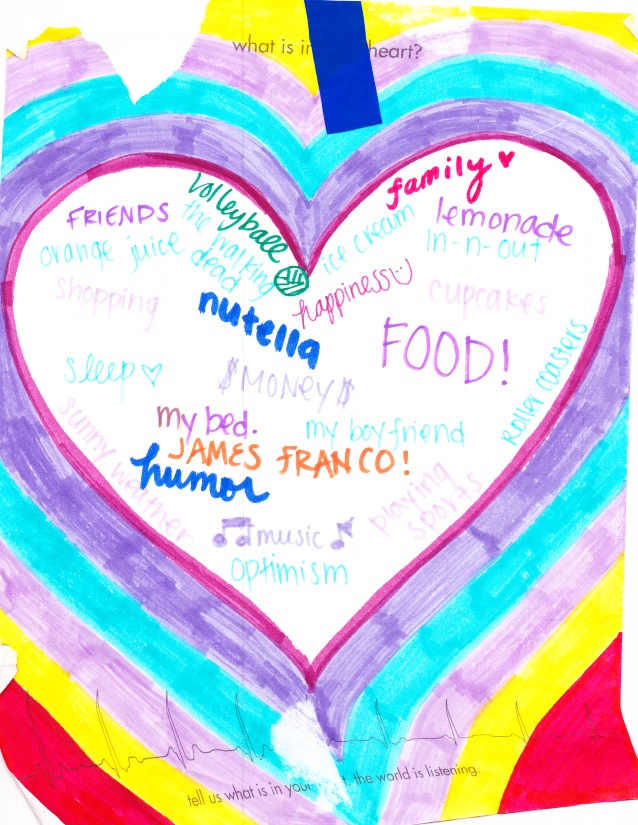 what is in heart?
family
volleyball
FRIENDS
lemonade
the walking
dead
ice cream
in-n-out
orange juice
happiness
shopping
cupcakes
nutella
FOOD!
roller coasters
sleep
$MONEY$
my bed.
my boyfriend
JAMES FRANCO!
sunny weather
humor
playing
sports
music
optimism
tell us what is in your . the world is listening.